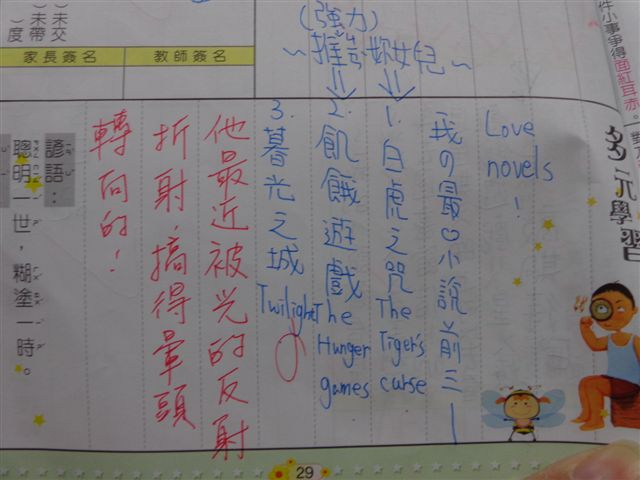 件小事爭得面紅耳赤。
多元學習
Love
novels!
我の最♡小說前三—
1.白虎之咒 The Tiger's curse
2.飢餓遊戲 The Hunger games
3.暮光之城 Twilight
(強力)
~推 妳女兒~
他最近被光的反射
折射,搞得暈頭
轉向的!
)未交
)未帶
度
家長簽名
教師簽名
諺語:
聰明一世,糊塗一時。
29